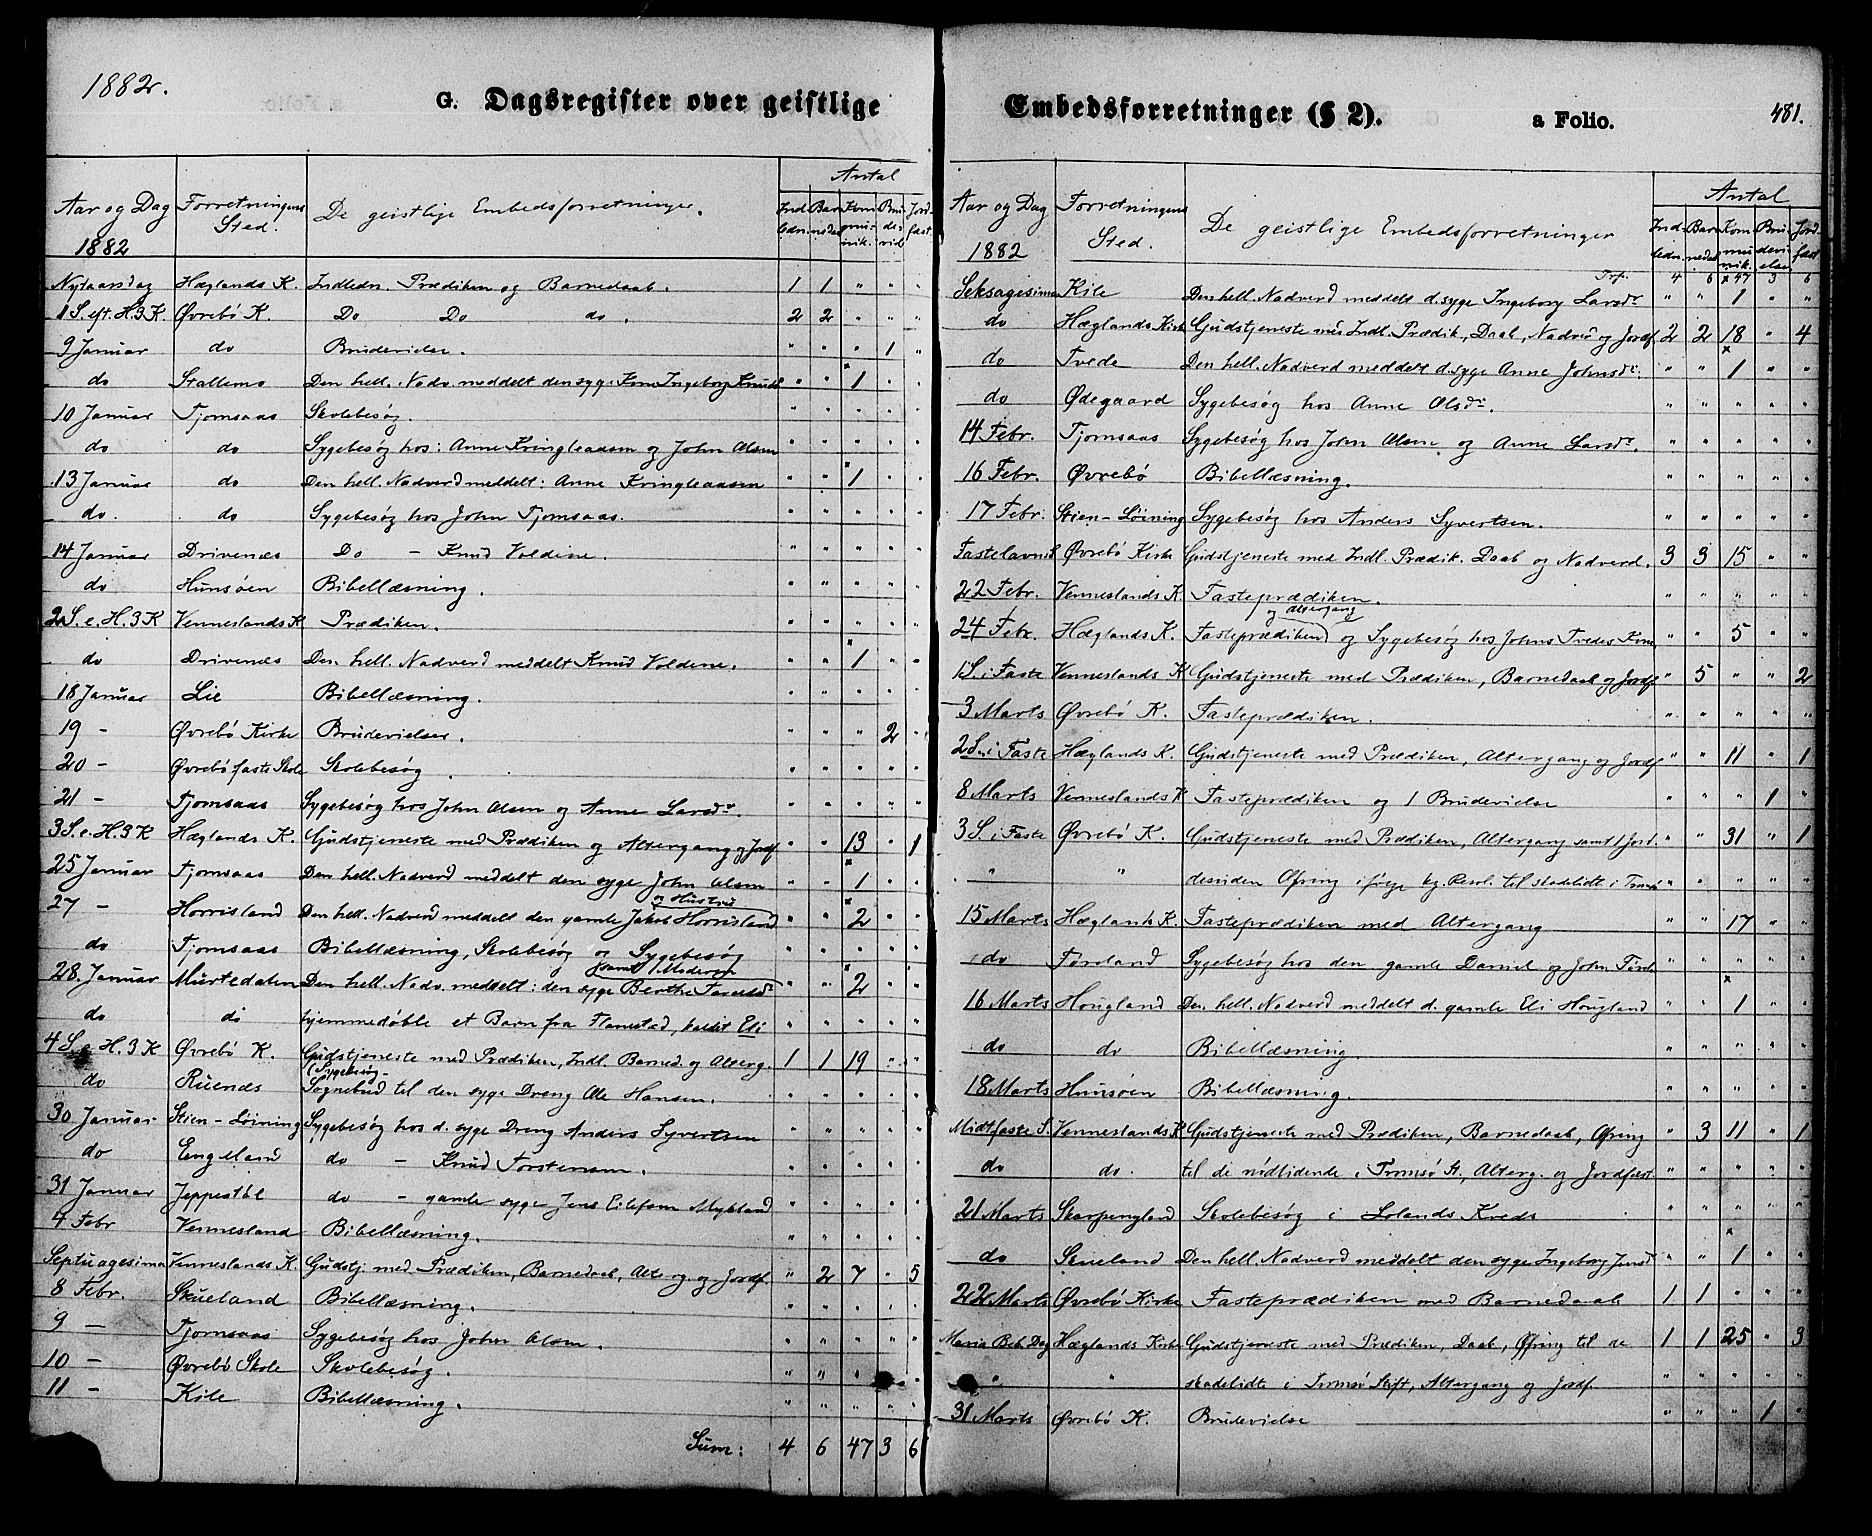 1882.
G. Dagsregister over geistlige
Antal
Aar og Dag Forretningens Sted. De geistlige Embedsforretninger. Indledn. Barnedaab Kommunik. Brudevid. Jordfæst.
1882
Nytaarsdag Hæglands K. Indledn. Prædiken og Barnedaab. 1 1 " " "
1 S. eft. H.3K. Øvrebö K. Do Do do. 2 2 " " "
9 Januar do Brudevielse. " " " 1 "
do Stallemo Den hell. Nadv. meddelt den syge Kone Ingeborg Knudsd " " 1 " "
10 Januar Tjomsaas Skolebesøg. " " " " "
do do Sygebesøg hos: Anne Kringleaasen og John Olsen " " " " "
13 Januar do Den hell. Nadverd meddelt: Anne Kringleaasen " " 1 " "
do. do Sygebesøg hos John Tjomsaas. " " " " "
14 Januar Drivenæs Do – Knud Voldene. " " " " "
do Hunsøen Bibellæsning. " " " " "
2 S. e. H.3K Venneslands K Prædiken. " " " " "
do Drivenæs Den hell. Nadverd meddelt Knud Voldene. " " 1 " "
18 Januar Lie Bibellæsning. " " " " "
19 – Øvrebö Kirke Brudevielser. " " " 2 "
20 – Øvrebö faste Skole Skolebesøg. " " " " "
21 – Tjomsaas Sygebesøg hos John Olsen og Anne Larsdr. " " " " "
3 S. e. H.3K Hæglands K. Gudstjeneste med Prædiken og Altergang og Jordf. " " 13 " 1
25 Januar Tjomsaas Den hell. Nadverd meddelt den syge John Olsen " " 1 " "
og Hustru
27 – Horrisland Den hell. Nadverd meddelt den gamle Jakob Horrisland " " 2 " "
do Tjomsaas Bibellæsning, Skolebesøg og Sygebesøg " " " " "
samt Moderen
28. Januar Murtedalen Den hell. Nadv. meddelt: den syge Berthe " " 2 " "
do do hjemmedøbte et Barn fra Flanestad, kaldet Eli " " " " "
4 S. e. H.3K Øvrebö K. Gudstjeneste med Prædiken, Indl. Barned. og Alterg. 1 1 19 " "
(Sygebesøg-
do Ruenæs Sognebud til den syge Dreng Ole Hansen. " " " " "
30 Januar Stien-Løining Sygebesøg hos d. syge Dreng Anders Syvertsen " " " " "
do Engeland do – Knud Torstensen. " " " " "
31 Januar Jeppestøl do – gamle syge Jens Eilefsen Mykland " " " " "
4 Febr Vennesland Bibellæsning. " " " " "
Septuagesima Venneslands K. Gudstj. med Prædiken, Barnedaab, Alterg. og Jordf. " 2 7 " 5
8 Febr. Skueland Bibellæsning. " " " " "
9 – Tjomsaas Sygebesøg hos John Olsen. " " " " "
10 – Øvrebö Skole Skolebesøg. " " " " "
11 – Kile Bibellæsning. " " " " "
Sum: 4 6 47 3 6
Embedsforretninger (§ 2).
a Folio.
481.
Antal
Aar og Dag Forretningens Sted. De geistlige Embedsforretninger Indledn. Barnedaab Kommunik. Brudevielser Jordfæst
1882
Trf. 4 6 47 3 6
Seksagesima Kile Den hell. Nadverd meddelt d. syge Ingeborg Larsdr " " 1 " "
do Hæglands Kirke Gudstjeneste med Indl. Prædik, Daab, Nadverd og Jordf 2 2 18 " 4
do Tvede Den hell. Nadverd meddelt d. syge Anne Johnsdr. " " 1 " "
do Ødegaard Sygebesøg hos Anne Olsdr. " " " " "
14 Febr. Tjomsaas Sygebesøg hos John Olsen og Anne Larsdr. " " " " "
16 Febr. Øvrebö Bibellæsning. " " " " "
17 Febr. Stien-Løining Sygebesøg hos Anders Syvertsen. " " " " "
Fastelavns S Øvrebö Kirke Gudstjeneste med Indl. Prædik. Daab og Nadverd. 3 3 15 " "
22 Febr. Venneslands K. Fasteprædiken. " " " " "
og Altergang
24 Febr. Hæglands K. Fasteprædiken og Sygebesøg hos Johns Tvedes Kone " " 5 " "
1 S. i Faste Venneslands K Gudstjeneste med Prædiken, Barnedaab og Jordf " 5 " " 2
3 Marts Øvrebö K. Fasteprædiken. " " " " "
2 S. i Faste Hæglands K. Gudstjeneste med Prædiken, Altergang og Jordf " " 11 " 1
8 Marts Venneslands K Fasteprædiken og 1 Brudevielse " " " 1 "
3 S. i Faste Øvrebö K. Gudstjeneste med Prædiken, Altergang samt 1 Jord. " " 31 " 1
" " desuden Ofring ifølge kg. Resol. til skadelidt. i " " " " "
15 Marts Hæglands K. Fasteprædiken med Altergang " " 17 " "
do Førdland Sygebesøg hos den gamle Daniel og John " " " " "
16 Marts Hougland Den hell. Nadverd meddelt d. gamle Eli Hougland " " 1 " "
do do Bibellæsning. " " " " "
18 Marts Hunsøen Bibellæsning. " " " " "
Midtfaste S. Venneslands K Gudstjeneste med Prædiken, Barnedaab, Ofring " 3 11 " 1
do do. til de nødlidende i Tromsø St., Alterg. og Jordfæst. " " " " "
21 Marts Skarpengland Skolebesøg i Lolands Kreds " " " " "
do Skueland Den hell. Nadverd meddelt den syge Ingeborg Jensd " " 1 " "
22 Marts Øvrebö Kirke Fasteprædiken med Barnedaab 1 1 " " "
Maria Beb. Dag Hæglands Kirke Gudstjeneste med Prædiken, Daab, Ofring til de 1 1 25 " 3
" " skadelidte i Tromsø Stift, Altergang og Jordf. " " " " "
31 Marts Øvrebö K. Brudevielse " " " 1 "